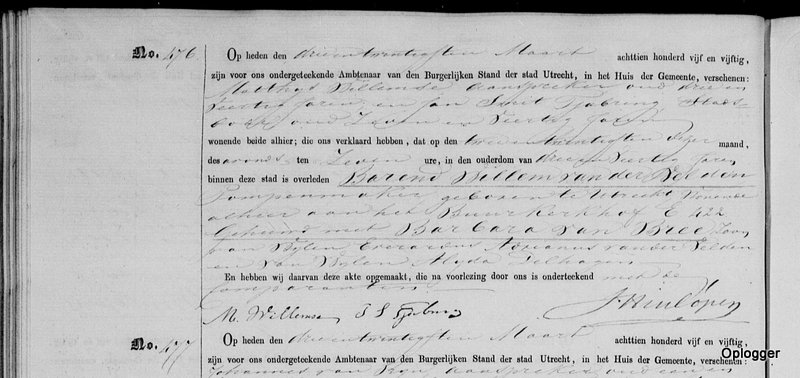 No. 476. Op heden den drieentwintigsten Maart achttien honderd vijf en vijftig,
zijn voor ons ondergeteekende Ambtenaar van den Burgerlijken Stand der stad Utrecht, in het Huis der Gemeente, verschenen:
Matthys Willemse Aanspreker oud drie en
Veertig jaren en Jan Smit Tjabring
oud Zeven en Veertig jaren
wonende beide alhier; die ons verklaard hebben, dat op den tweeentwintigsten dezer maand,
des avonds ten Zeven ure, in den ouderdom van drie en Veertig jaren
binnen deze stad is overleden Barend Willem van der Velden
Pompenmaker geboren te Utrecht Wonende
alhier aan het Buurkerkhof C 422
Gehuwd met Barbara van Bree Zoon
van Wylen Everardus Adrianus van der Velden
en van Wylen Alyda
En hebben wij daarvan deze akte opgemaakt, die na voorlezing door ons is onderteekend met de
Comparanten
M. Willemse J S Tjabring
No. 477 Op heden den drieentwintigsten Maart achttien honderd vijf en vijftig,
zijn voor ons ondergeteekende Ambtenaar van den Burgerlijken Stand der stad Utrecht, in het Huis der Gemeente, verschenen:
Johannes van aanspreker oud een en
Oplogger